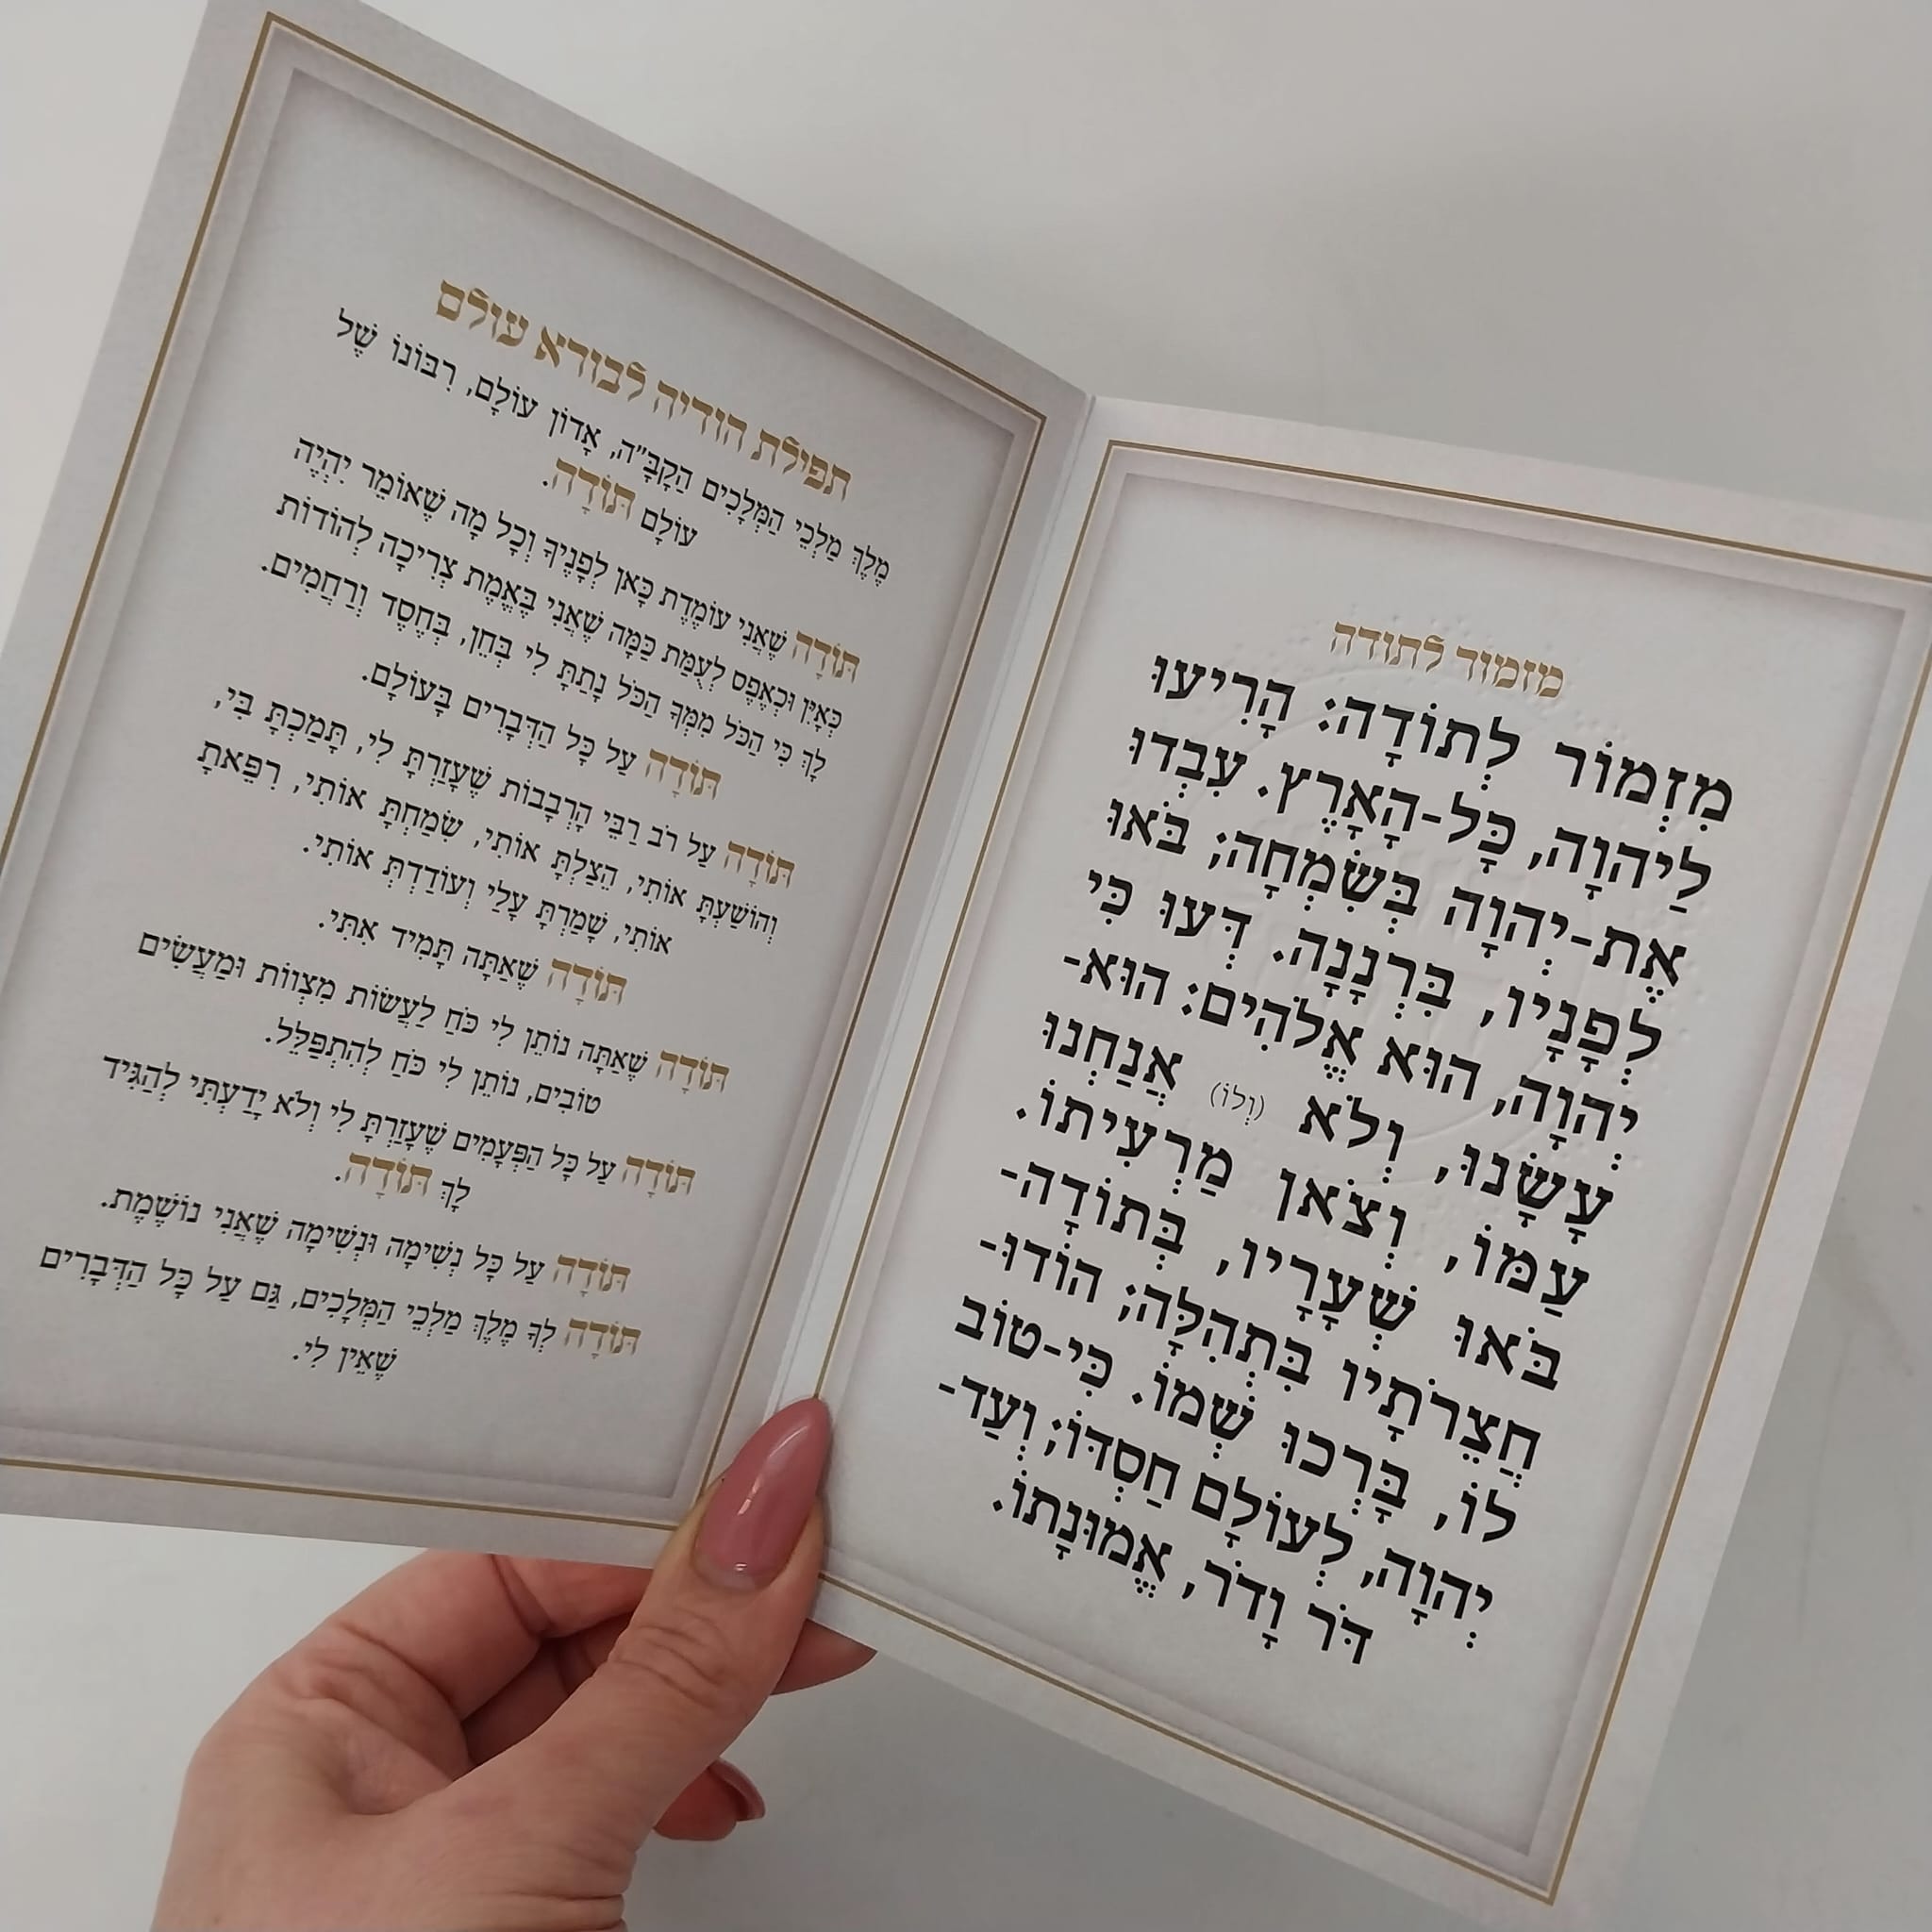 מזמור לתודה
מִזְמוֹר לְתוֹדָה: הָרִיעוּ
לַיהוָה, כָּל-הָאָרֶץ. עִבְדוּ
אֶת-יְהוָה בְּשִׂמְחָה; בֹּאוּ
לְפָנָיו, בִּרְנָנָה. דְּעוּ כִּי
יְהוָה, הוּא אֱלֹהִים: הוּא-
עָשָׂנוּ, וְלֹא (וְלוֹ) אֲנַחְנוּ
עַמּוֹ, וְצֹאן מַרְעִיתוֹ.
בֹּאוּ שְׁעָרָיו, בְּתוֹדָה-
חֲצֵרֹתָיו בִּתְהִלָּה; הוֹדוּ-
לוֹ, בָּרְכוּ שְׁמוֹ. כִּי-טוֹב
יְהוָה, לְעוֹלָם חַסְדּוֹ; וְעַד-
דֹּר וָדֹר, אֱמוּנָתוֹ.
תפילת הודיה לבורא עולם
מֶלֶךְ מַלְכֵי הַמְּלָכִים הַקָּבָּ"ה, אֲדוֹן עוֹלָם, רִבּוֹנוֹ שֶׁל
עוֹלָם תּוֹדָה.
תּוֹדָה שֶׁאֲנִי עוֹמֶדֶת כָּאן לְפָנֶיךָ וְכָל מָה שֶׁאוֹמֵר יִהְיֶה
כְּאַיִן וּכְאֶפֶס לְעֻמַּת כַּמָּה שֶׁאֲנִי בֶּאֱמֶת צְרִיכָה לְהוֹדוֹת
לָךְ כִּי הַכֹּל מִמְּךָ הַכֹּל נָתַתָּ לִי בְּחֵן, בְּחֶסֶד וְרַחֲמִים.
תּוֹדָה עַל כָּל הַדְּבָרִים בָּעוֹלָם.
תּוֹדָה עַל רֹב רַבֵּי הָרְבָבוֹת שֶׁעָזַרְתָּ לִי, תָּמַכְתָּ בִּי,
וְהוֹשַׁעְתָּ אוֹתִי, הִצַּלְתָּ אוֹתִי, שִׂמַּחְתָּ אוֹתִי, רִפֵּאתָ
אוֹתִי, שָׁמַרְתָּ עָלַי וְעוֹדַדְתְּ אוֹתִי.
תּוֹדָה שֶׁאַתָּה תָּמִיד אִתִּי.
תּוֹדָה שֶׁאַתָּה נוֹתֵן לִי כֹּחַ לַעֲשׂוֹת מִצְווֹת וּמַעֲשִׂים
טוֹבִים, נוֹתֵן לִי כֹּחַ לְהִתְפַּלֵּל.
תּוֹדָה עַל כָּל הַפְּעָמִים שֶׁעָזַרְתָּ לִי וְלֹא יָדַעְתִּי לְהַגִּיד
לָךְ תּוֹדָה.
תּוֹדָה עַל כָּל נְשִׁימָה וּנְשִׁימָה שֶׁאֲנִי נוֹשֶׁמֶת.
תּוֹדָה לְךָ מֶלֶךְ מַלְכֵי הַמְּלָכִים, גַּם עַל כָּל הַדְּבָרִים
שֶׁאֵין לִי.